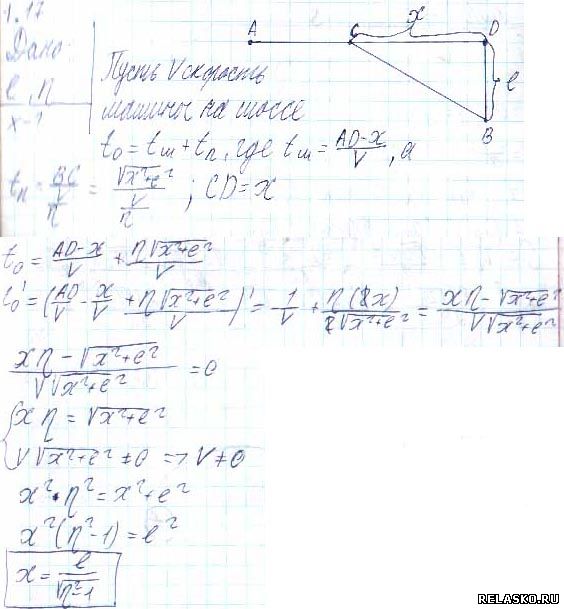 1.17
Дано:
l, η
x-?
Пусть V скорость
машины на шоссе
A C x D
l
B
t₀ = tш + tп, где tш = (AD-x)/V, а
tп = BC/(V/η) = √(x²+l²)/(V/η); CD = x
t₀ = (AD-x)/V + η√(x²+l²)/V
t₀' = (AD/V - x/V + η√(x²+l²)/V)' = 1/V + η(2x)/(2√(x²+l²)) = (xη-√(x²+l²))/(V√(x²+l²))
(xη - √(x²+l²))/(V√(x²+l²)) = 0
{ xη = √(x²+l²)
V√(x²+l²) ≠ 0 => V ≠ 0
x²·η² = x²+l²
x²(η²-1) = l²
x = l/√(η²-1)
RELASKO.RU